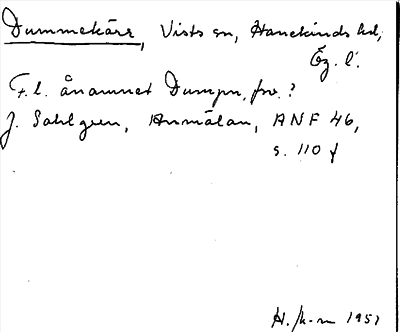 Dummekärr, Vists sn, Hanekinds hd,
Ög. l.
F. l. ånamnet Dumpn, fsv. ?
J. Sahlgren, Anmälan, ANF 46,
s. 110 f
1951